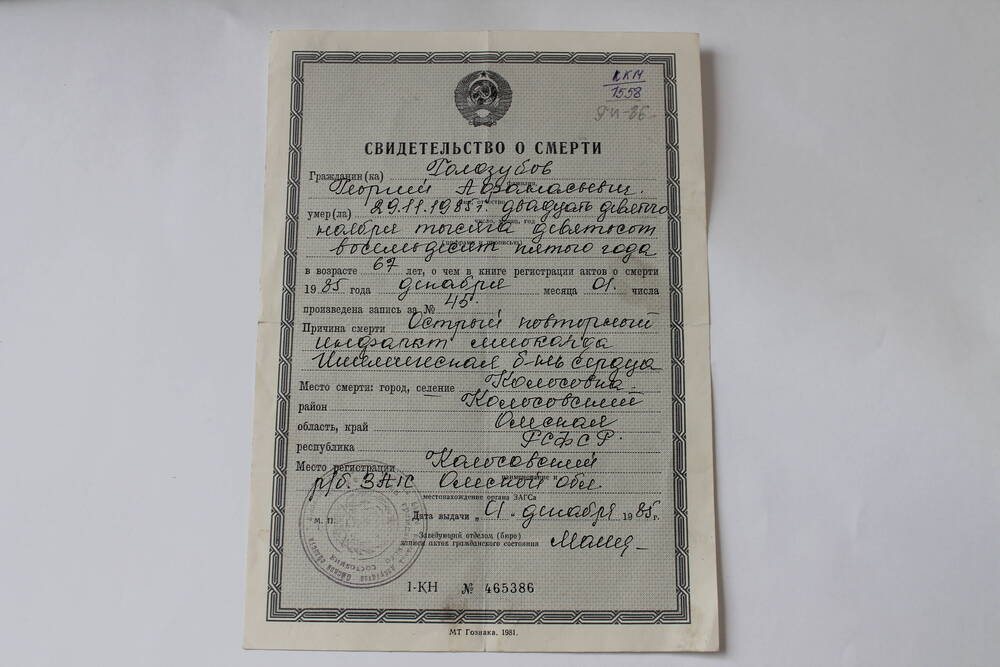 ККМ
1558
СВИДЕТЕЛЬСТВО О СМЕРТИ
Гражданин(ка) Голозубов
Георгий Афанасьевич
умер(ла) 29.11.1985 г. двадцать девятого
ноября тысяча девятьсот
восемьдесят пятого года
в возрасте 67 лет, о чем в книге регистрации актов о смерти
1985 года декабря месяца 01. числа
произведена запись за № 45.
Причина смерти Острый повторный
инфаркт миокарда
Ишемическая б-нь сердца
Место смерти: город, селение Колосовка
район Колосовский
область, край Омская
республика РСФСР.
Место регистрации Колосовский
р/б. ЗАГС Омской обл
местонахождение органа ЗАГСа
М. П.
Дата выдачи „01. декабря 1985 г.
Заведующий отделом (бюро)
записи актов гражданского состояния
I-КН № 465386
МТ Гознака. 1981.